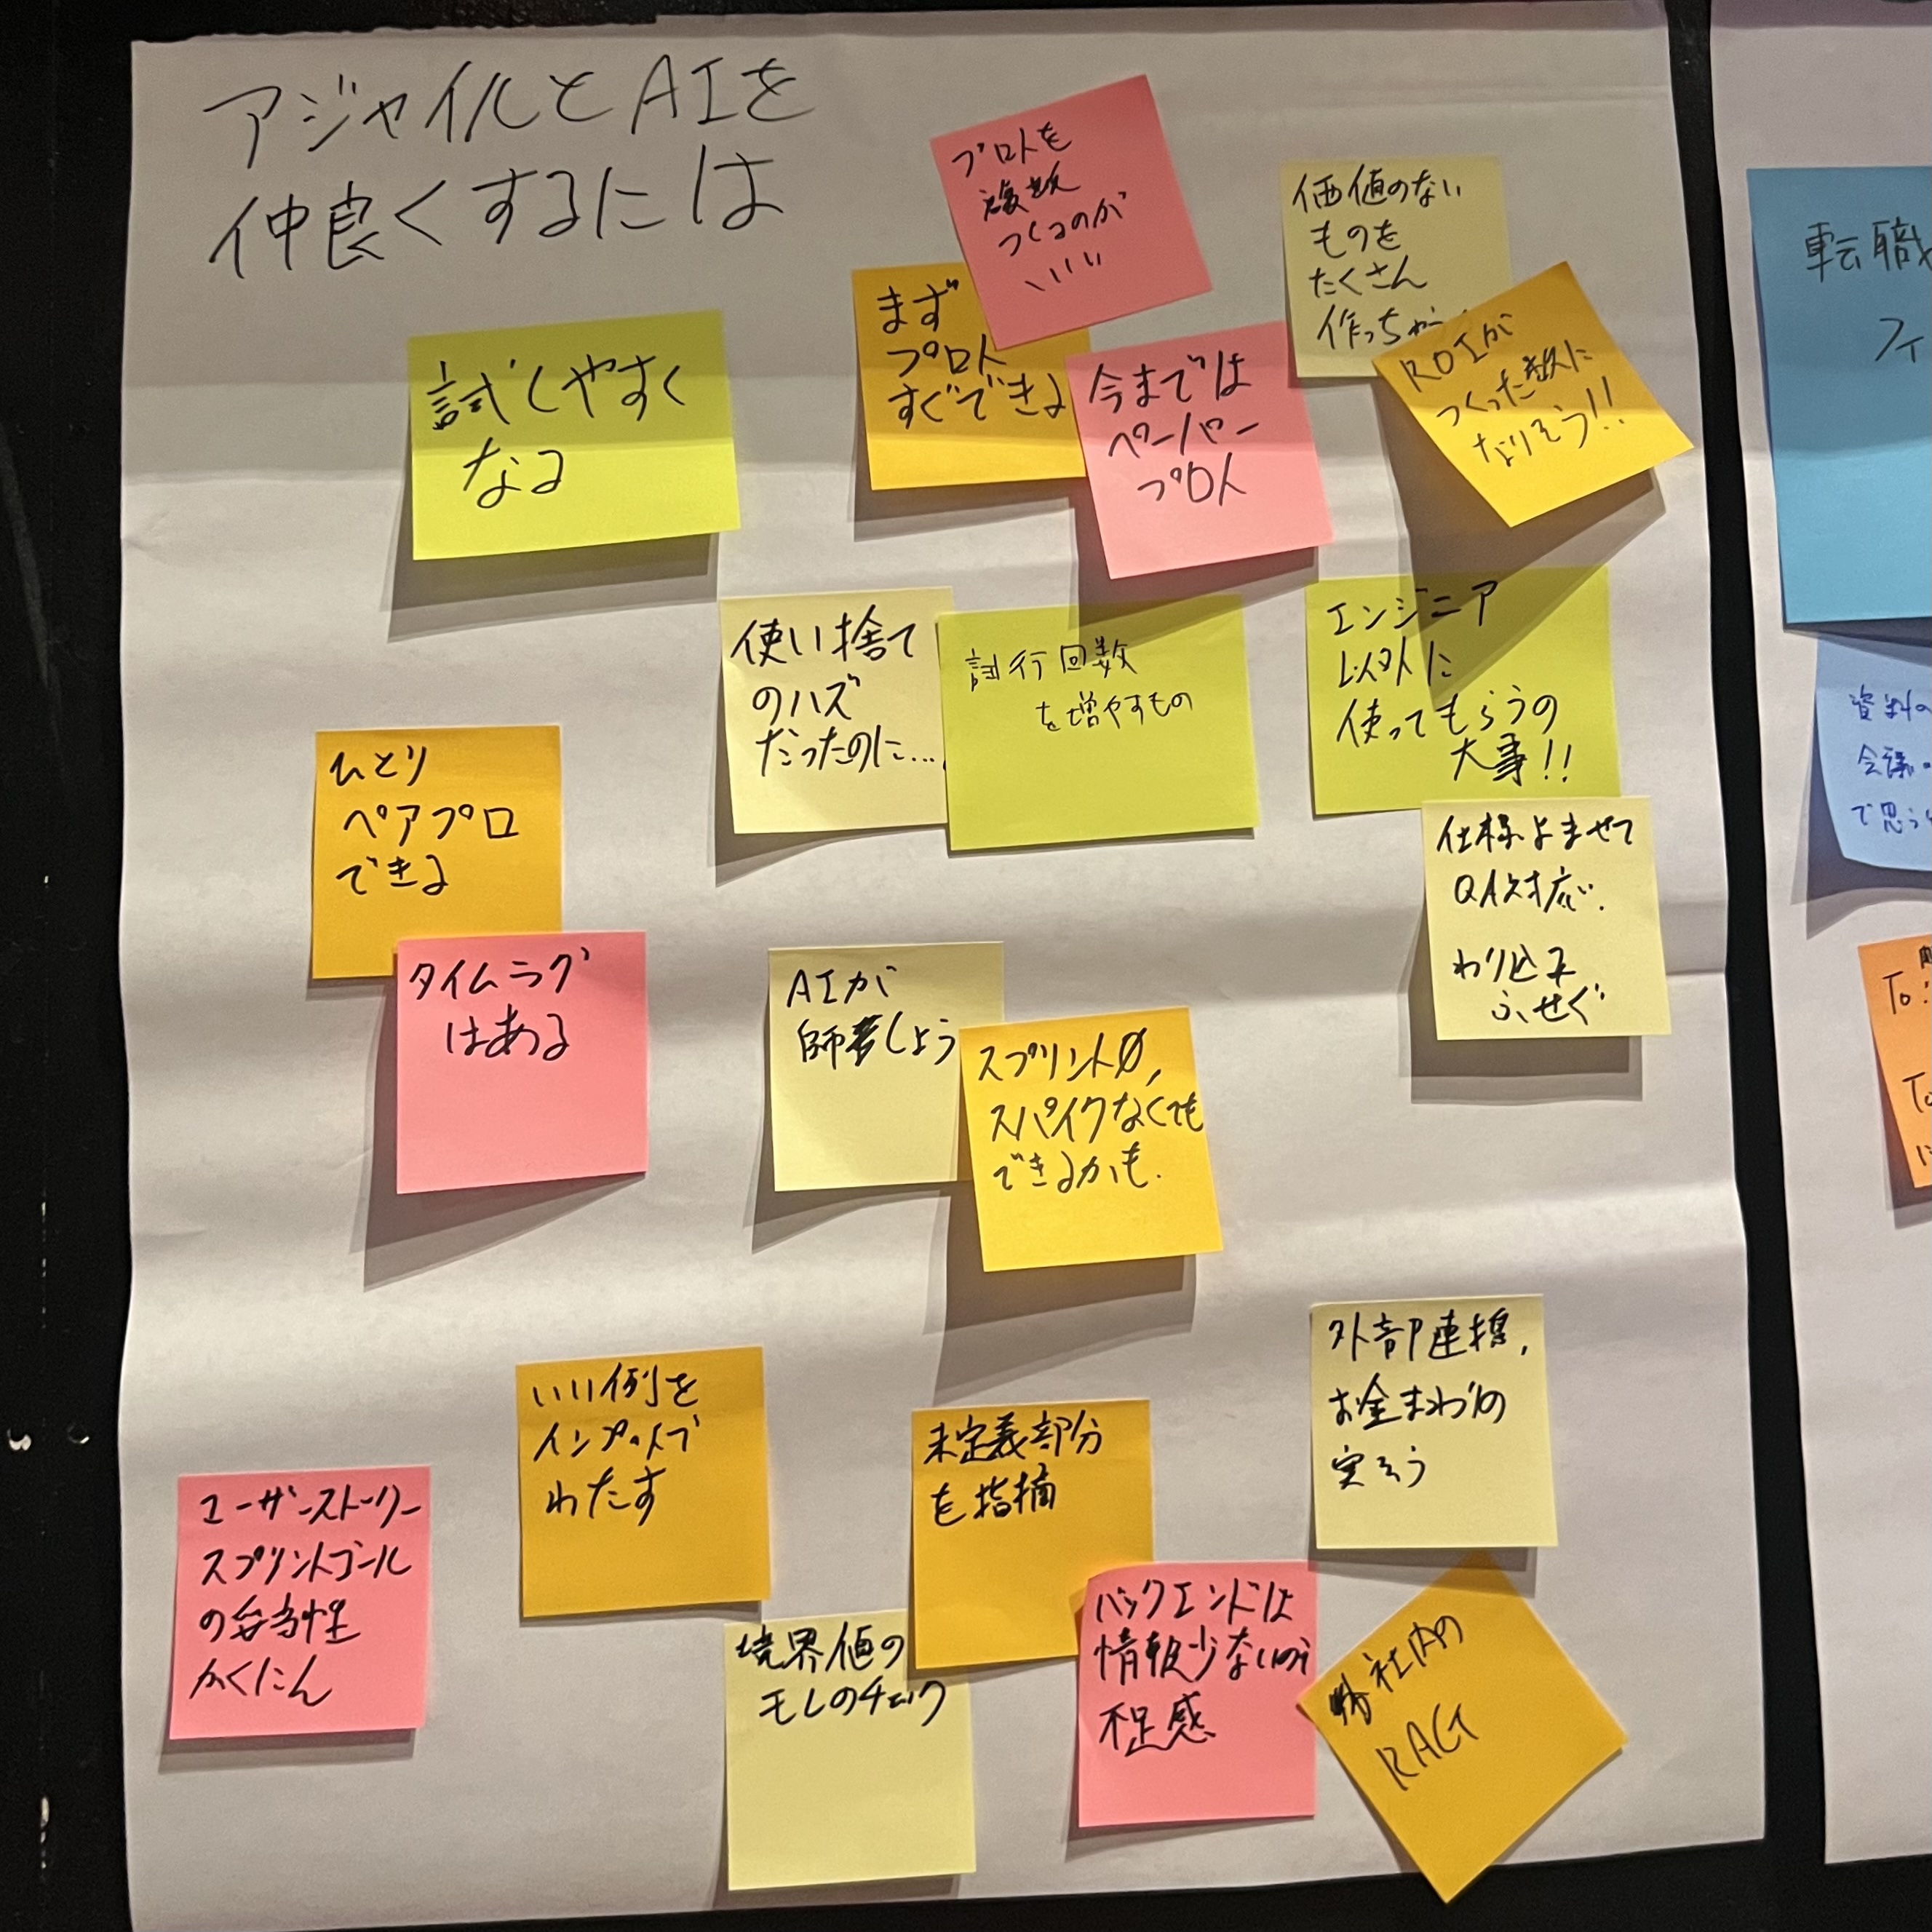 アジャイルとAIを
仲良くするには
プロトを
複数
つくるのが
いい
価値のない
ものを
たくさん
作っちゃう
まず
プロト
すぐできる
今までは
ペーパー
プロト
ROIが
つくった数に
なりそう!!
試しやすく
なる
使い捨て
のハズ
だったのに…
試行回数
を増やすもの
エンジニア
以外に
使ってもらうの
大事!!
ひとり
ペアプロ
できる
仕様よませて
QA対応.
わり込み
ふせぐ
タイムラグ
はある
AIが
師 しよう
スプリント0,
スパイクなくても
できるかも.
外部連携,
お金まわりの
実そう
いい例を
インプットで
わたす
未定義部分
を指摘
ユーザーストーリー
スプリントゴール
の妥当性
かくにん
境界値の
モレのチェック
バックエンドは
情報少ないの
不足感
社内の
RAG
転職
フィ
資料の
会議
で思う
To:
To